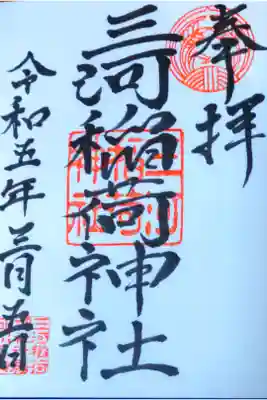 奉拝
三河稲荷神社
令和五年三月五日